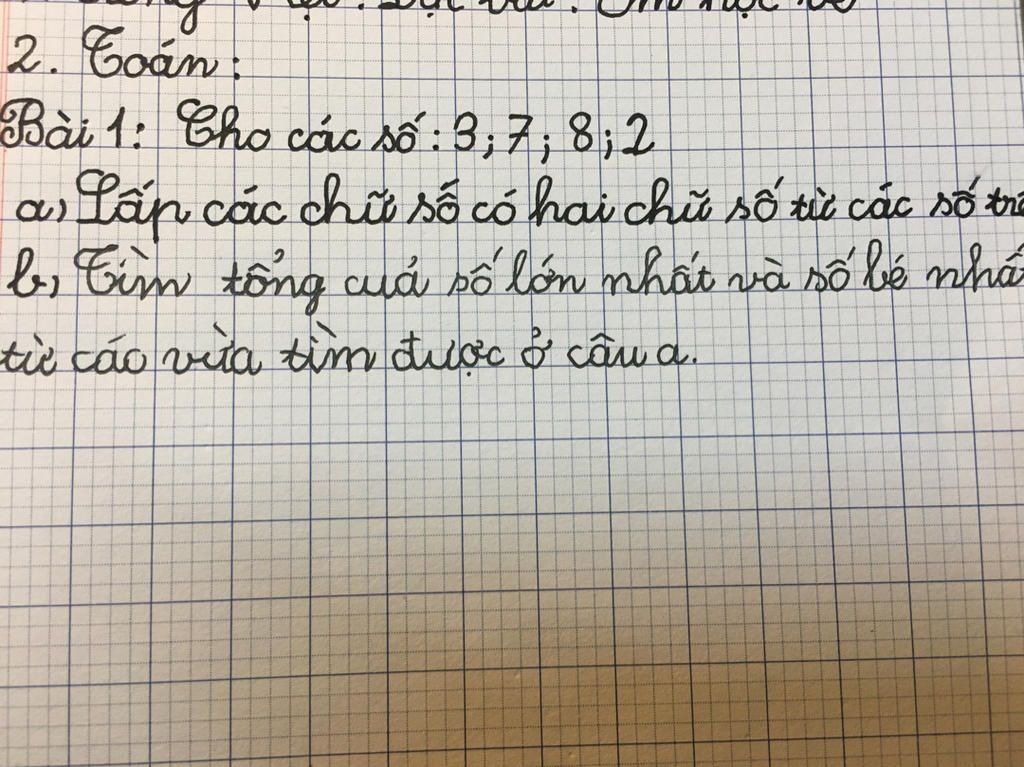 2. Toán:
Bài 1: Cho các số: 3; 7; 8; 2
a, Lấp các chữ số có hai chữ số từ các số
b, Tìm tổng cuả số lớn nhất và số bé
từ các vừa tìm được ở câu a.